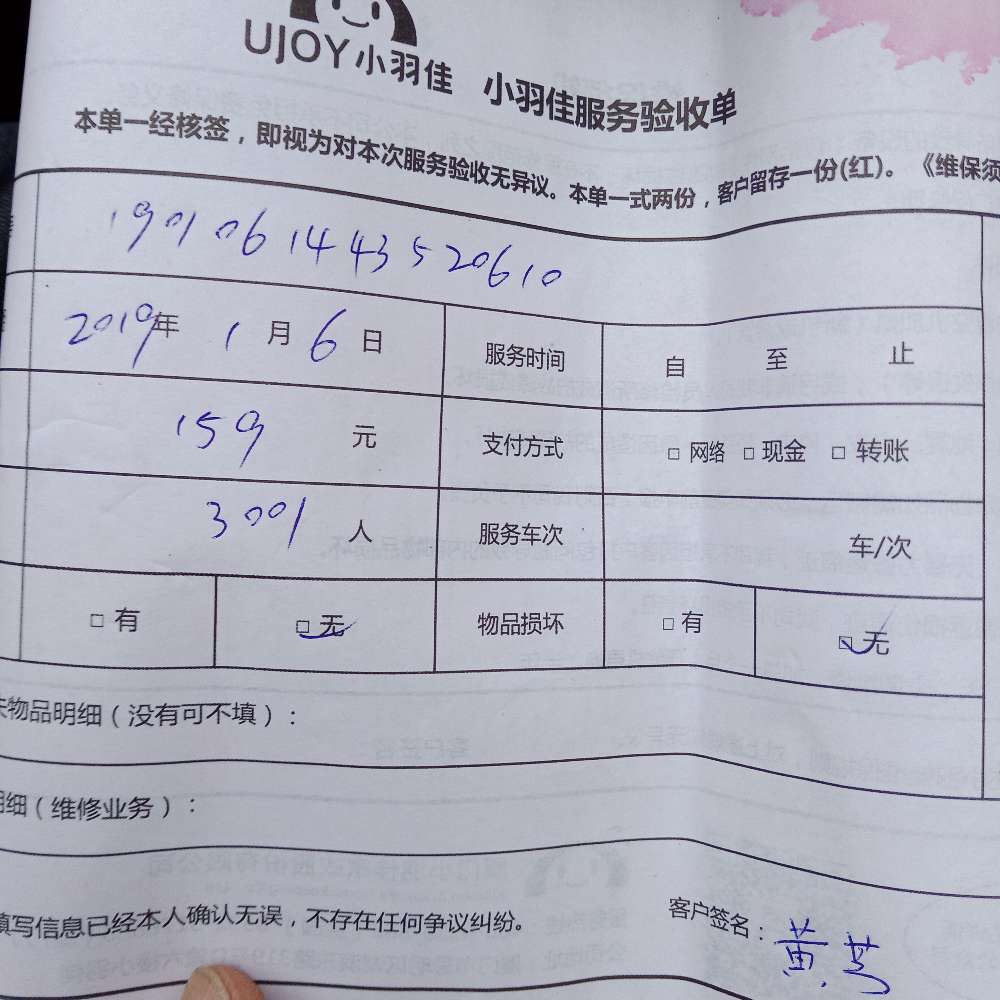 UJOY小羽佳 小羽佳服务验收单
本单一经核签，即视为对本次服务验收无异议。本单一式两份，客户留存一份(红)。《维保须
1901061443520610
2019年 1月6日 服务时间 自 至 止
159 元 支付方式 □ 网络 □ 现金 □ 转账
3001 人 服务车次 车/次
□ 有 □ 无 物品损坏 □ 有 □ 无
物品明细（没有可不填）：
明细（维修业务）：
填写信息已经本人确认无误，不存在任何争议纠纷。 客户签名：黄